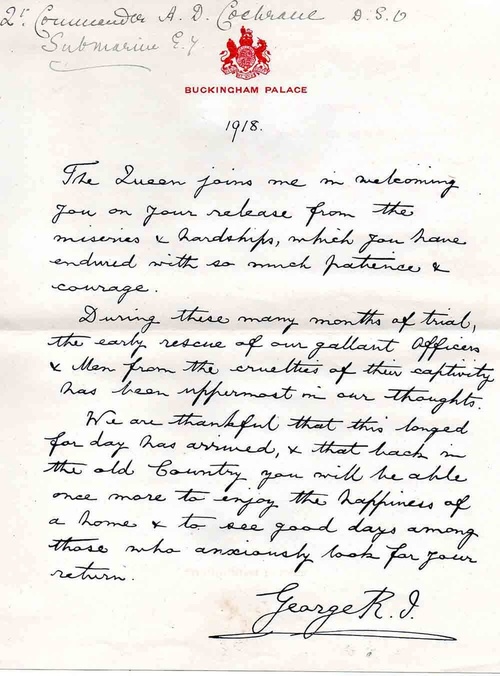 Lt Commander A. D. Cochrane D.S.O
Submarine E.7
BUCKINGHAM PALACE
1918.
The Queen joins me in welcoming
you on your release from the
miseries & hardships, which you have
endured with so much patience &
courage.
During these many months of trial,
the early rescue of our gallant Officers
& Men from the cruelties of their captivity
has been uppermost in our thoughts.
We are thankful that this longed
for day has arrived, & that back in
the old Country you will be able
once more to enjoy the happiness of
a home & to see good days among
those who anxiously look for your
return.
George R.I.